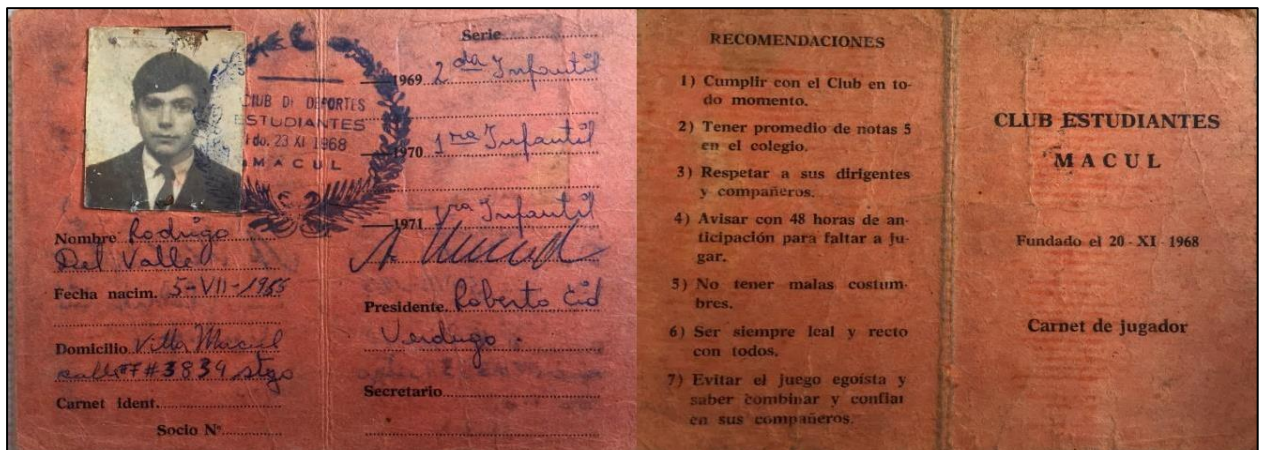 CLUB DE DEPORTES
ESTUDIANTES
Fdo. 23 XI 1968
MACUL
Nombre Rodrigo
Del Valle
Fecha nacim. 5-VII-1955
Domicilio Villa Macul
calle #3834 stgo
Carnet ident.
Socio Nº
Serie
1969 2da Infantil
1970 1ra Infantil
1971 1ra Infantil
Presidente Roberto Cid
Verdugo.
Secretario
RECOMENDACIONES
1) Cumplir con el Club en to-
do momento.
2) Tener promedio de notas 5
en el colegio.
3) Respetar a sus dirigentes
y compañeros.
4) Avisar con 48 horas de an-
ticipación para faltar a ju-
gar.
5) No tener malas costum-
bres.
6) Ser siempre leal y recto
con todos.
7) Evitar el juego egoísta y
saber combinar y confiar
en sus compañeros.
CLUB ESTUDIANTES
MACUL
Fundado el 20 - XI - 1968
Carnet de jugador